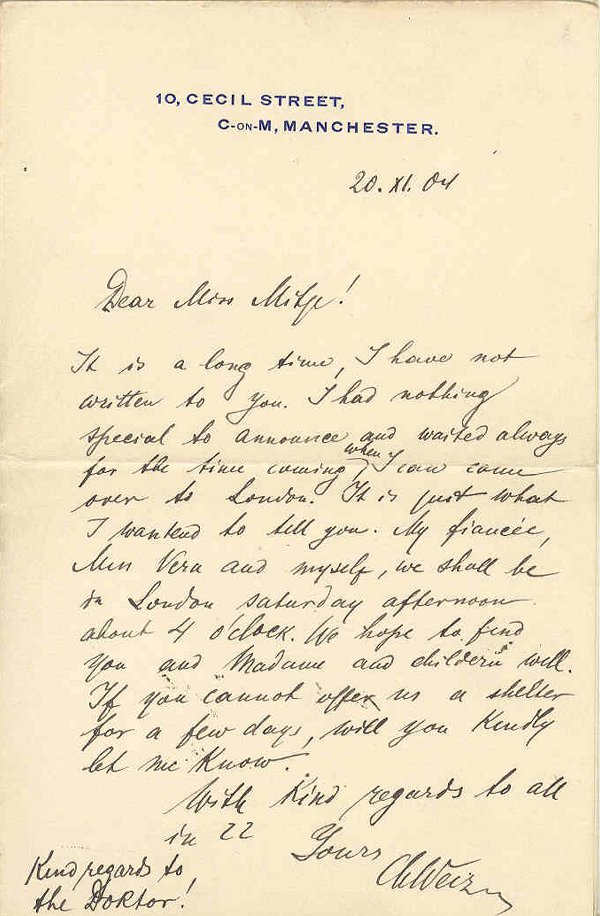 10, CECIL STREET,
C-ON-M, MANCHESTER.
20. XI. 04
Dear Miss
It is a long time, I have not
written to you. I had nothing
special to announce and waited always
for the time coming when I can come
over to London. It is just what
I wantend to tell you. My fiancée,
Miss Vera and myself, we shall be
in London saturday afternoon
about 4 o'clock. We hope to find
you and Madame and children well.
If you cannot offer us a shelter
for a few days, will you Kindly
let me Know.
With Kind regards to all
in 22
Yours
Ch Weizm
Kind regards to
the Doktor!